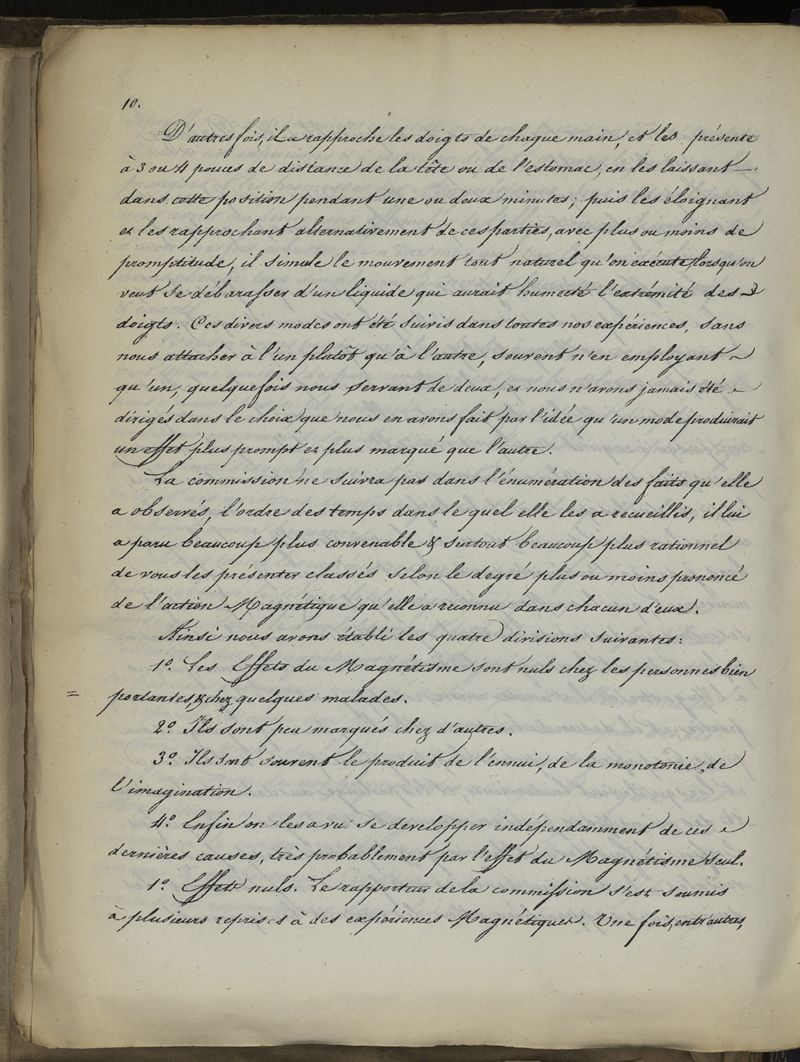 10.
D'autres fois, il a rapproché les doigts de chaque main, et les présente
à 3 ou 4 pouces de distance de la tête ou de l'estomac, en les laissant
dans cette position pendant une ou deux minutes; puis les éloignant
et les rapprochant alternativement de ces parties, avec plus ou moins de
promptitude, il simule le mouvement tout naturel qu'on exécute lorsqu'on
veut se débarasser d'un liquide qui aurait humecté l'extrémité des
doigts. Ces divers modes ont été suivis dans toutes nos expériences, sans
nous attacher à l'un plutôt qu'à l'autre, souvent n'en employant
qu'un, quelquefois nous servant de deux, et nous n'avons jamais été
dirigés dans le choix que nous en avons fait par l'idée qu'un mode produirait
un effet plus prompt et plus marqué que l'autre.
La commission ne suivra pas dans l'énumération des faits qu'elle
a observés, l'ordre des temps dans le quel elle les a recueillis, il lui
a paru beaucoup plus convenable & surtout beaucoup plus rationnel
de vous les présenter classés selon le degré plus ou moins prononcé
de l'action Magnétique qu'elle a reconnu dans chacun d'eux.
Ainsi nous avons établi les quatre divisions suivantes:
1º. Les Effets du Magnétisme sont nuls chez les personnes bien
= portantes, & chez quelques malades.
2º. Ils sont peu marqués chez d'autres.
3º. Ils sont souvent le produit de l'ennui, de la monotonie, de
l'imagination.
4º. Enfin on les a vu se developper indépendamment de ces
dernières causes, très probablement par l'effet du Magnétisme seul.
1º. Effets nuls. Le rapporteur de la commission s'est soumis
à plusieurs reprises à des expériences Magnétiques. Une fois, entr'autres,